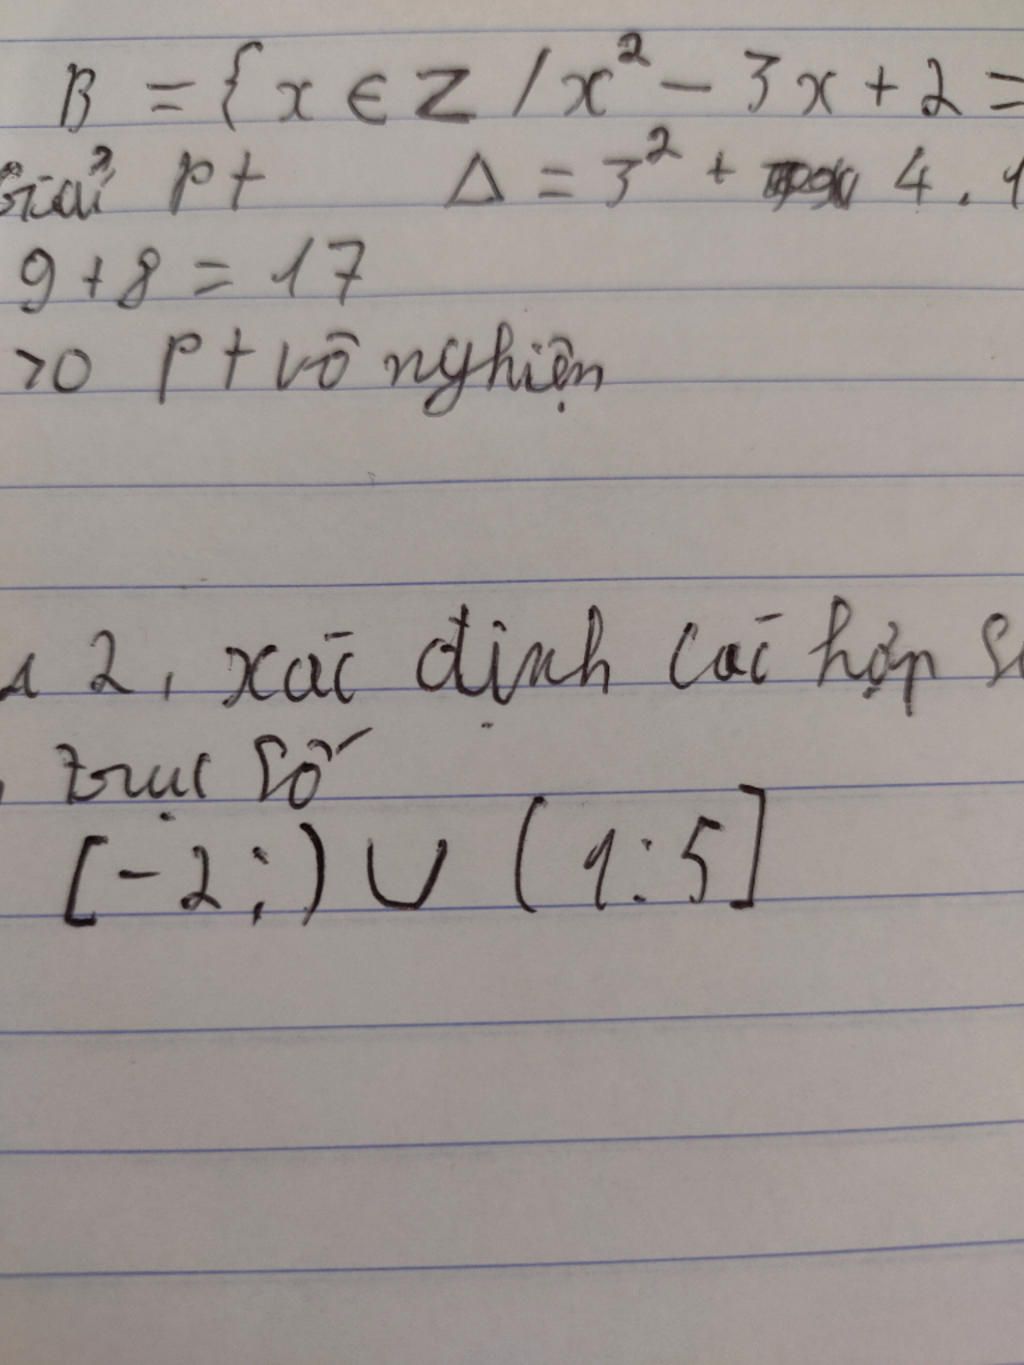 B = {x ∈ Z / x² - 3x + 2 =
Giải pt Δ = 3² + 4 . 1
9 + 8 = 17
>0 pt vô nghiện
2, xác định các hợp
trục số
[-2;) ∪ (1:5]